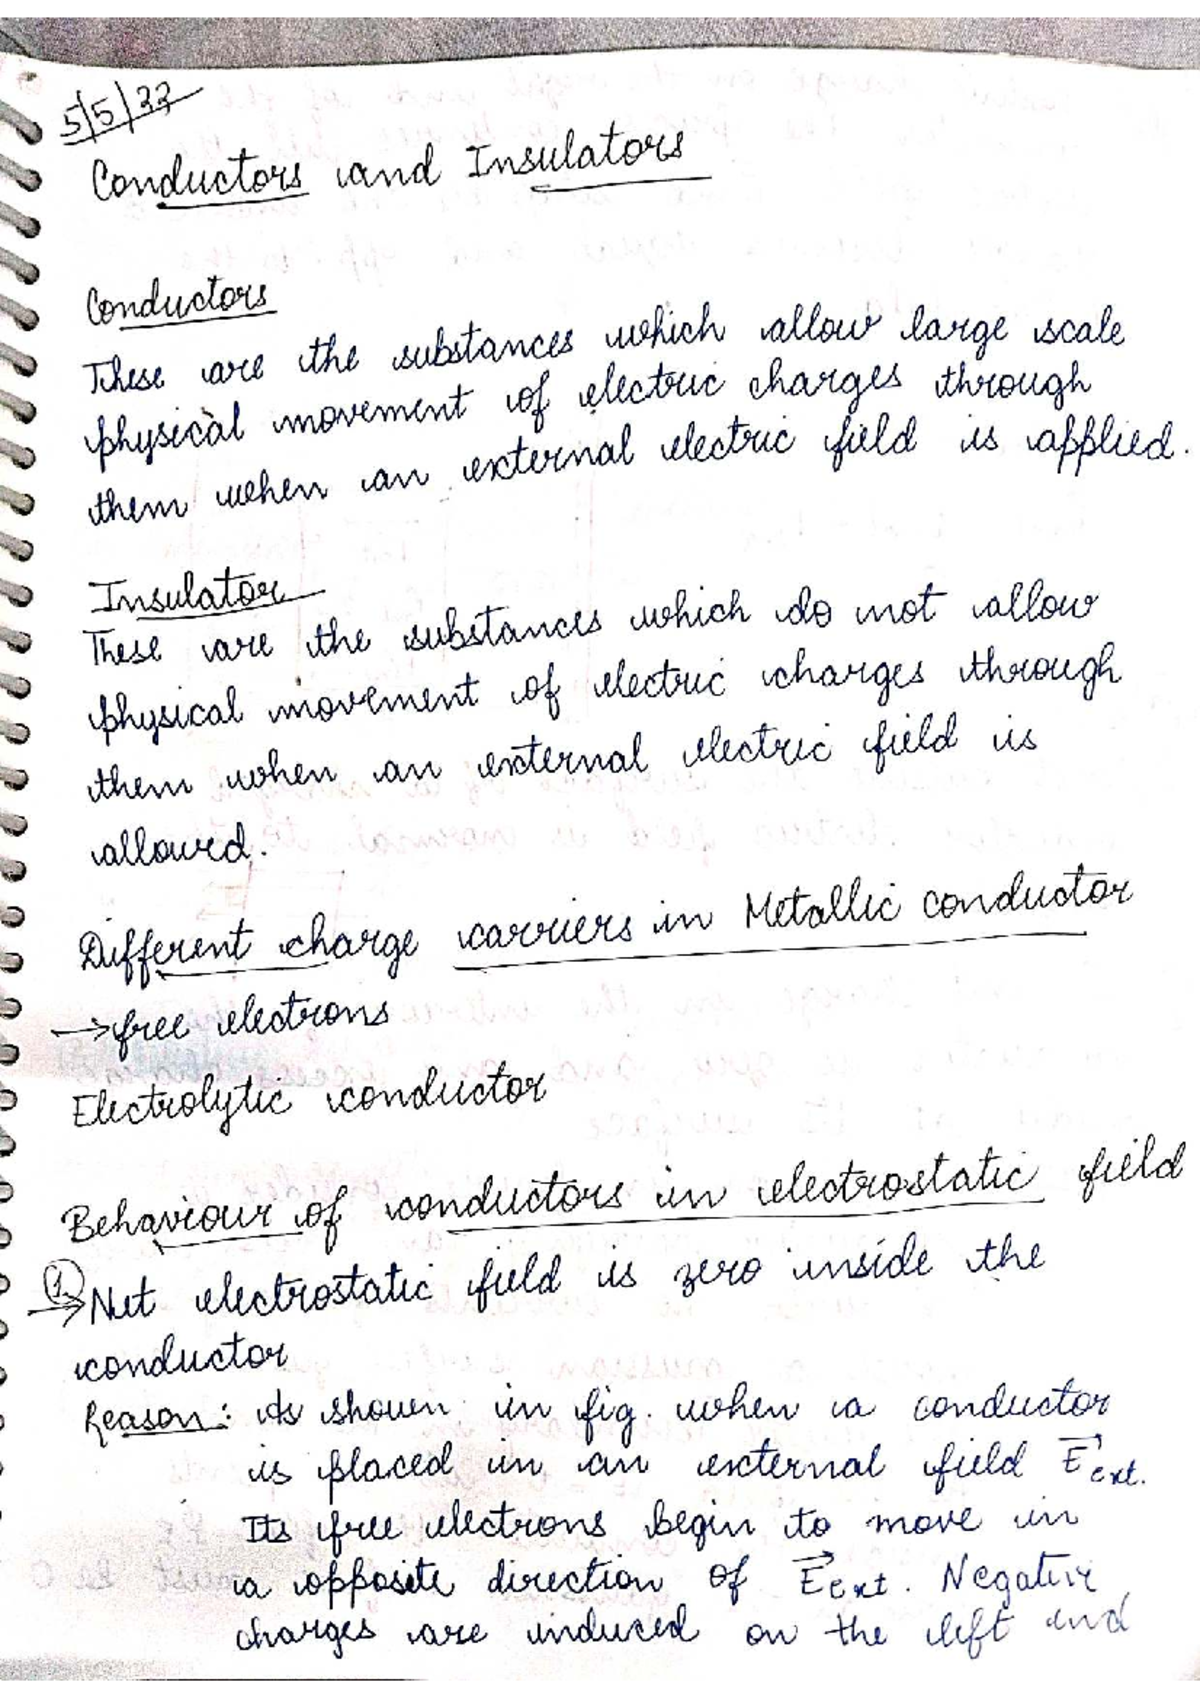 5/5/22
Conductors and Insulators
Conductors
These are the substances which allow large scale
physical movement of electric charges through
them when an external electric field is applied.
Insulator
These are the substances which do not allow
physical movement of electric charges through
them when an external electric field is
allowed.
Different charge carriers in Metallic conductor
→ free electrons
Electrolytic conductor
Behaviour of conductors in electrostatic field
1. → Net electrostatic field is zero inside the
conductor
Reason: As shown in fig. when a conductor
is placed in an external field E⃗ext.
Its free electrons begin to move in
a opposite direction of E⃗ext. Negative
charges are induced on the left end